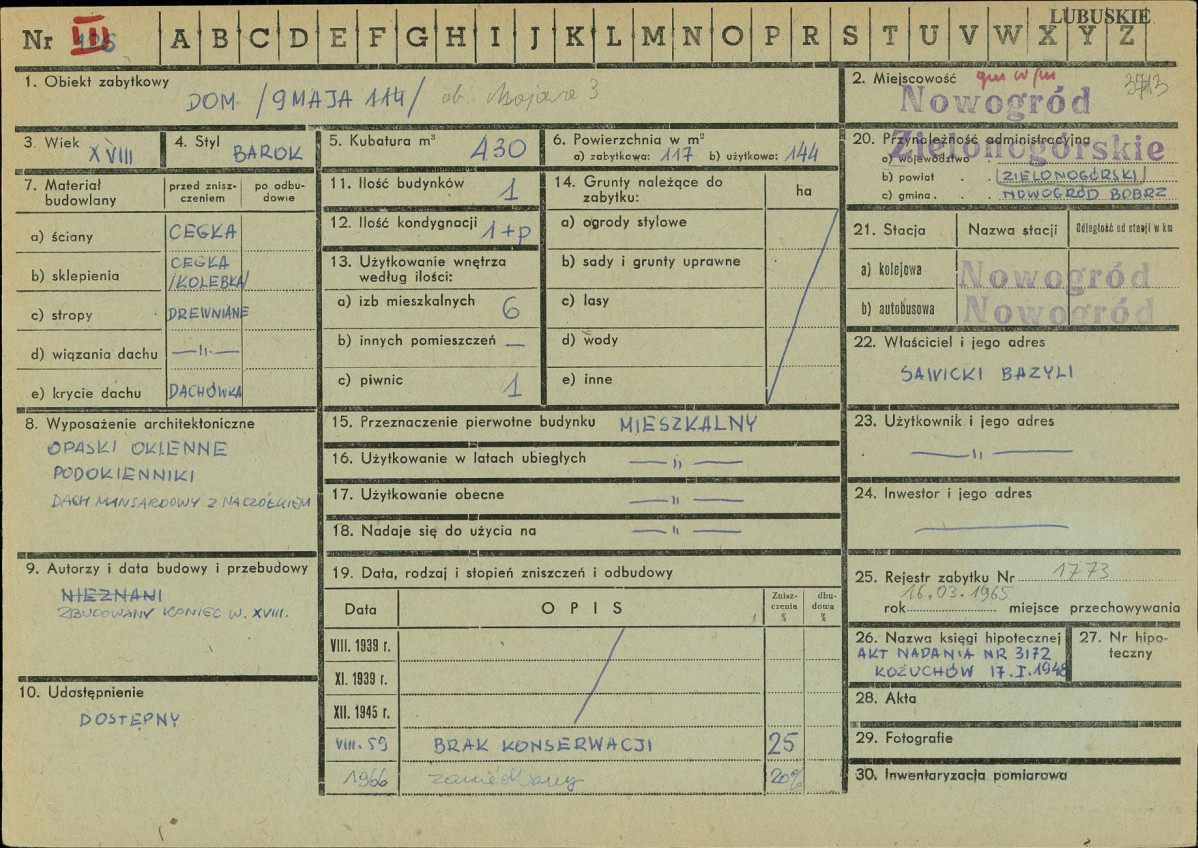 Nr III A B C D E F G H I J K L M N O P R S T U V W X Y Z
LUBUSKIE
1. Obiekt zabytkowy
DOM /9 MAJA 114/ ob. 3
2. Miejscowość gm w/m 3713
Nowogród
3. Wiek XVIII
4. Styl BAROK
5. Kubatura m³ 430
6. Powierzchnia w m²
a) zabytkowa: 117 b) użytkowa: 144
20. Przynależność administracyjna
Zielonogórskie
a) województwo
b) powiat . . /ZIELONOGÓRSKI/
c) gmina . . . NOWOGRÓD BOBRZ
7. Materiał budowlany
przed znisz-
czeniem
po odbu-
dowie
a) ściany CEGŁA
b) sklepienia CEGŁA
/KOLEBKA/
c) stropy DREWNIANE
d) wiązania dachu —"—
e) krycie dachu DACHÓWKA
11. Ilość budynków 1
12. Ilość kondygnacji 1+p
13. Użytkowanie wnętrza
według ilości:
a) izb mieszkalnych 6
b) innych pomieszczeń —
c) piwnic 1
14. Grunty należące do
zabytku:
ha
a) ogrody stylowe
b) sady i grunty uprawne
c) lasy
d) wody
e) inne
21. Stacja Nazwa stacji Odległość od stacji w km
a) kolejowa Nowogród
b) autobusowa Nowogród
22. Właściciel i jego adres
SAWICKI BAZYLI
8. Wyposażenie architektoniczne
OPASKI OKIENNE
PODOKIENNIKI
DACH MANSARDOWY Z NACZÓŁKIEM
15. Przeznaczenie pierwotne budynku MIESZKALNY
16. Użytkowanie w latach ubiegłych —"—
17. Użytkowanie obecne —"—
18. Nadaje się do użycia na —"—
23. Użytkownik i jego adres
—"—
24. Inwestor i jego adres
—
9. Autorzy i data budowy i przebudowy
NIEZNANI
ZBUDOWANY KONIEC W. XVIII.
10. Udostępnienie
DOSTĘPNY
19. Data, rodzaj i stopień zniszczeń i odbudowy
Data OPIS Znisz-
czenia
%
dbu-
dowa
%
VIII. 1939 r.
XI. 1939 r.
XII. 1945 r.
VIII. 59 BRAK KONSERWACJI 25
1966 zaniedbany 20%
25. Rejestr zabytku Nr 1773
16.03.1965
rok miejsce przechowywania
26. Nazwa księgi hipotecznej
AKT NADANIA NR 3172
KOŻUCHÓW 17.I.1948
27. Nr hipo-
teczny
28. Akta
29. Fotografie
30. Inwentaryzacja pomiarowa